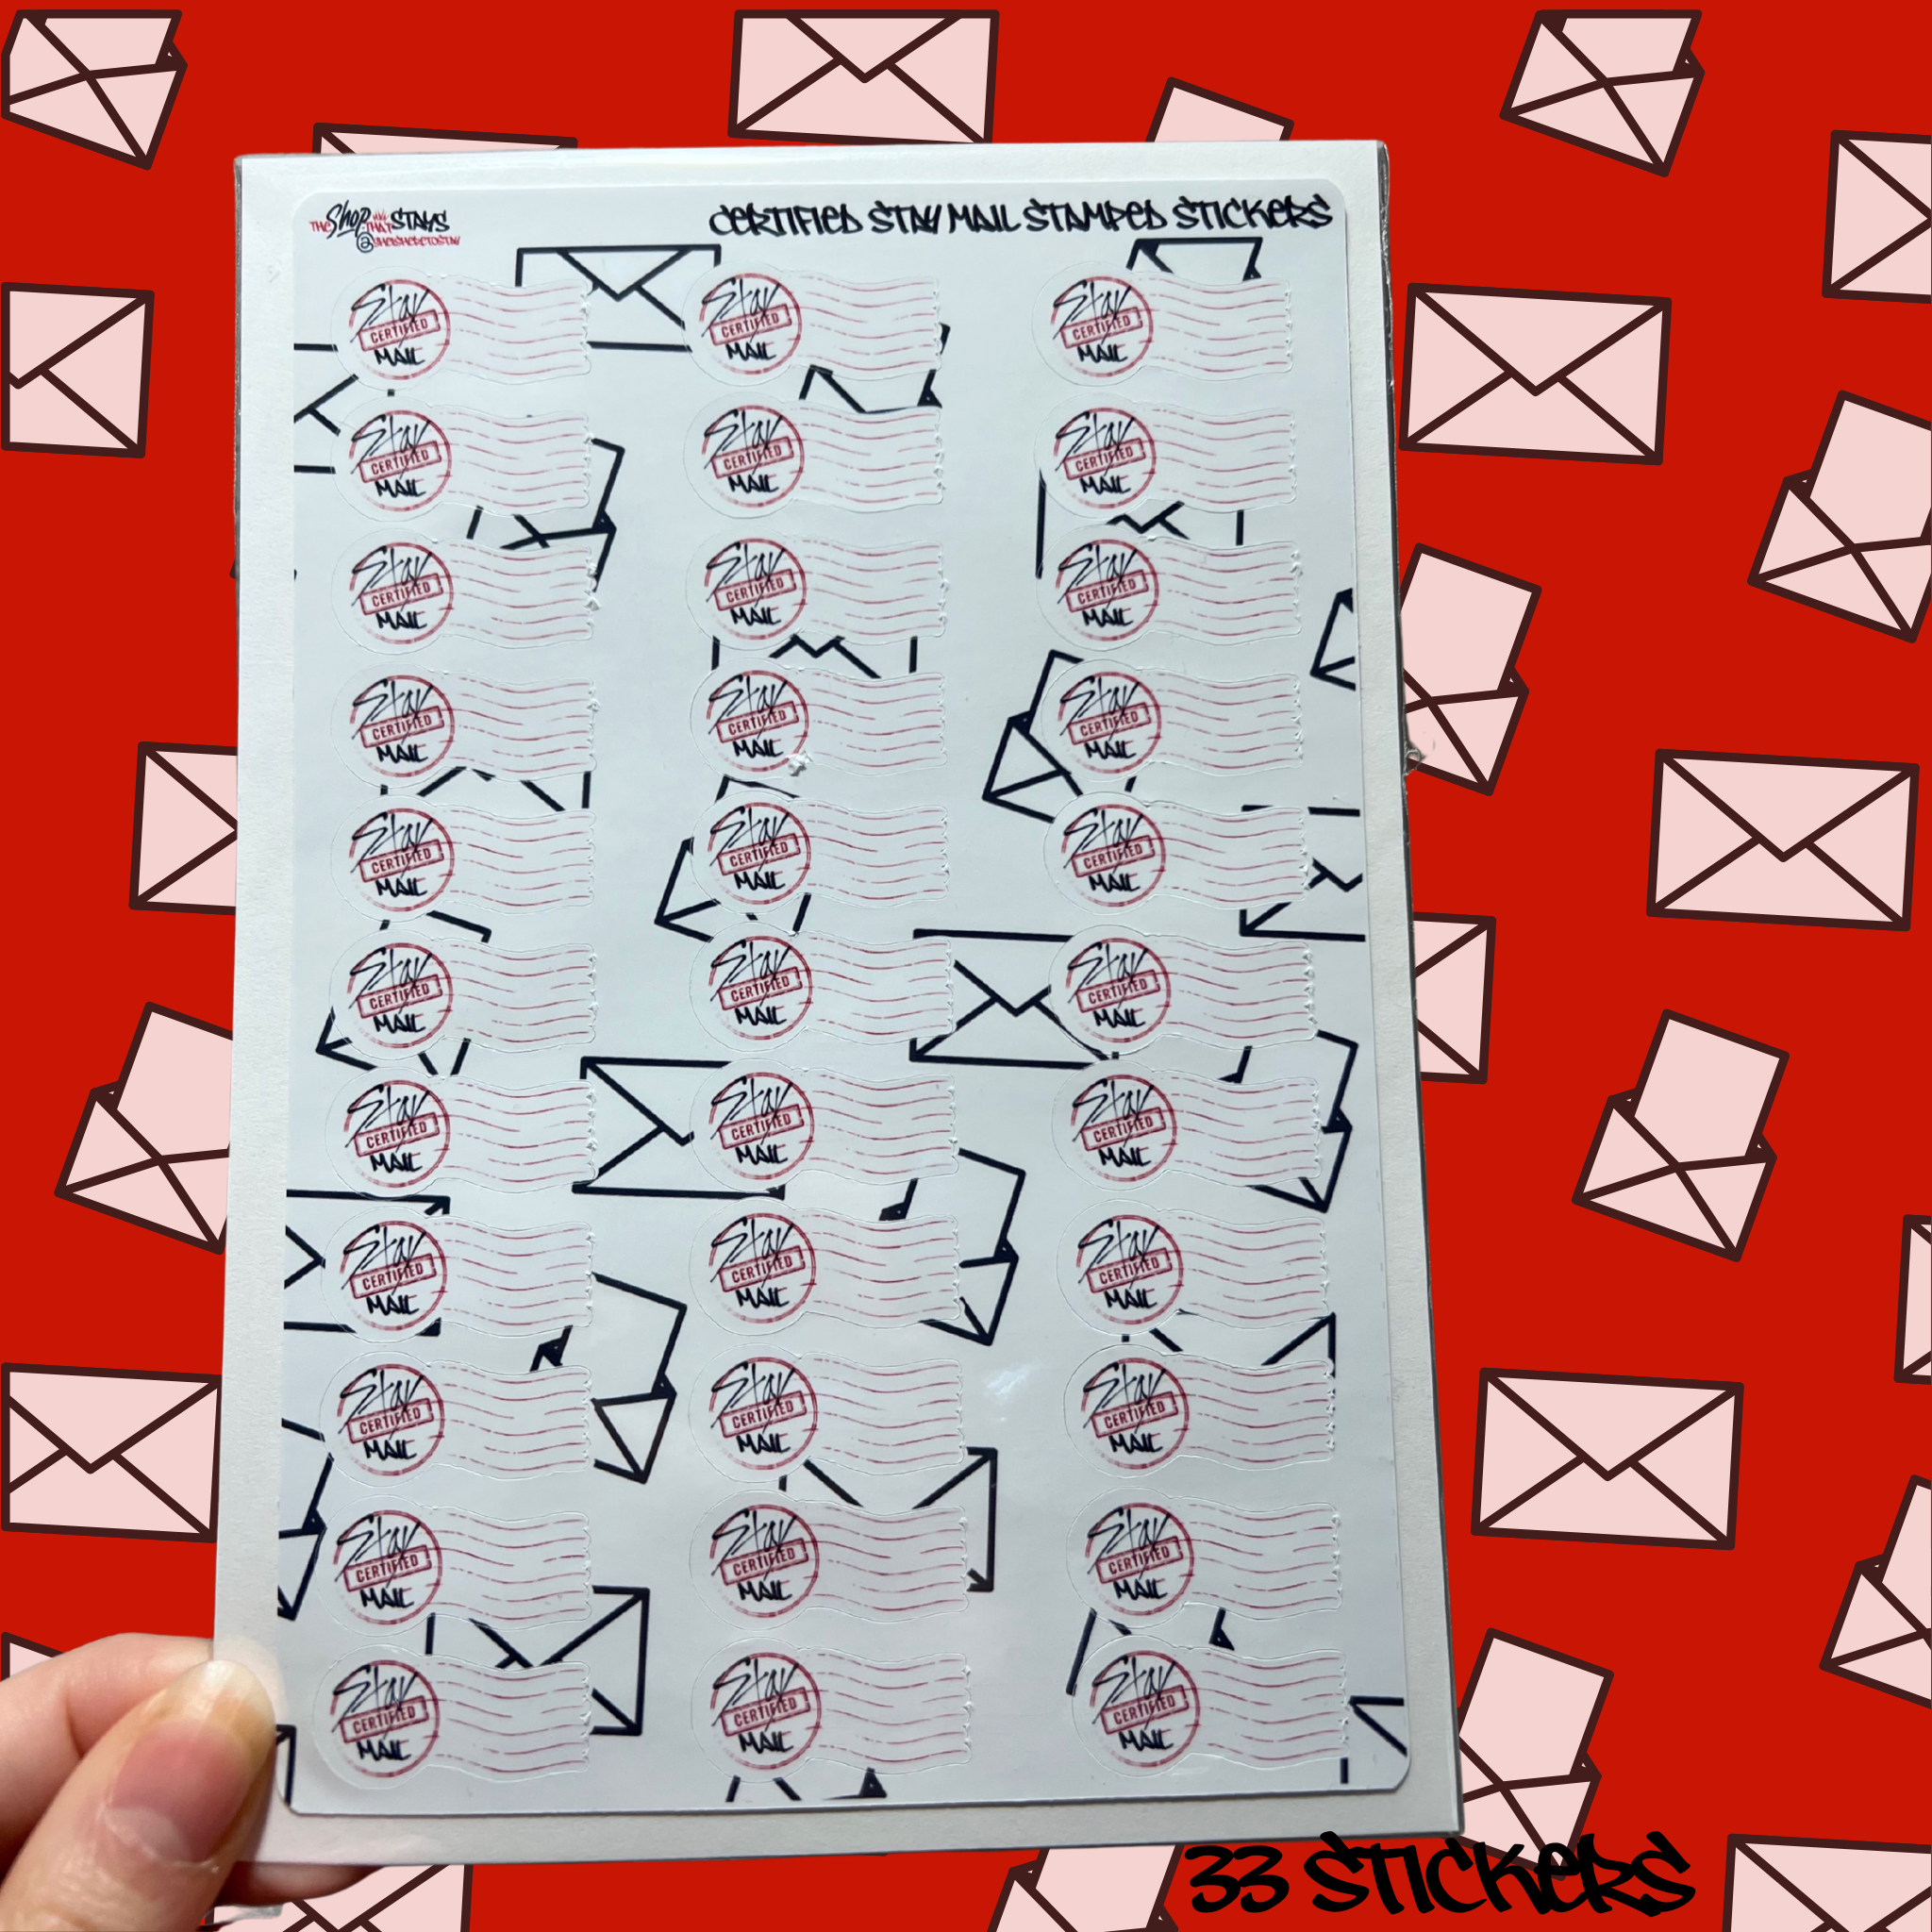 THE Shop THAT STAYS
@SHEISHERETOSTAY
CERTIFIED STAY MAIL STAMPED STICKERS
Stay
CERTIFIED
MAIL
Stay
CERTIFIED
MAIL
Stay
CERTIFIED
MAIL
Stay
CERTIFIED
MAIL
Stay
CERTIFIED
MAIL
Stay
CERTIFIED
MAIL
Stay
CERTIFIED
MAIL
Stay
CERTIFIED
MAIL
Stay
CERTIFIED
MAIL
Stay
CERTIFIED
MAIL
Stay
CERTIFIED
MAIL
Stay
CERTIFIED
MAIL
Stay
CERTIFIED
MAIL
Stay
CERTIFIED
MAIL
Stay
CERTIFIED
MAIL
Stay
CERTIFIED
MAIL
Stay
CERTIFIED
MAIL
Stay
CERTIFIED
MAIL
Stay
CERTIFIED
MAIL
Stay
CERTIFIED
MAIL
Stay
CERTIFIED
MAIL
Stay
CERTIFIED
MAIL
Stay
CERTIFIED
MAIL
Stay
CERTIFIED
MAIL
Stay
CERTIFIED
MAIL
Stay
CERTIFIED
MAIL
Stay
CERTIFIED
MAIL
Stay
CERTIFIED
MAIL
Stay
CERTIFIED
MAIL
Stay
CERTIFIED
MAIL
Stay
CERTIFIED
MAIL
Stay
CERTIFIED
MAIL
Stay
CERTIFIED
MAIL
33 STICKERS